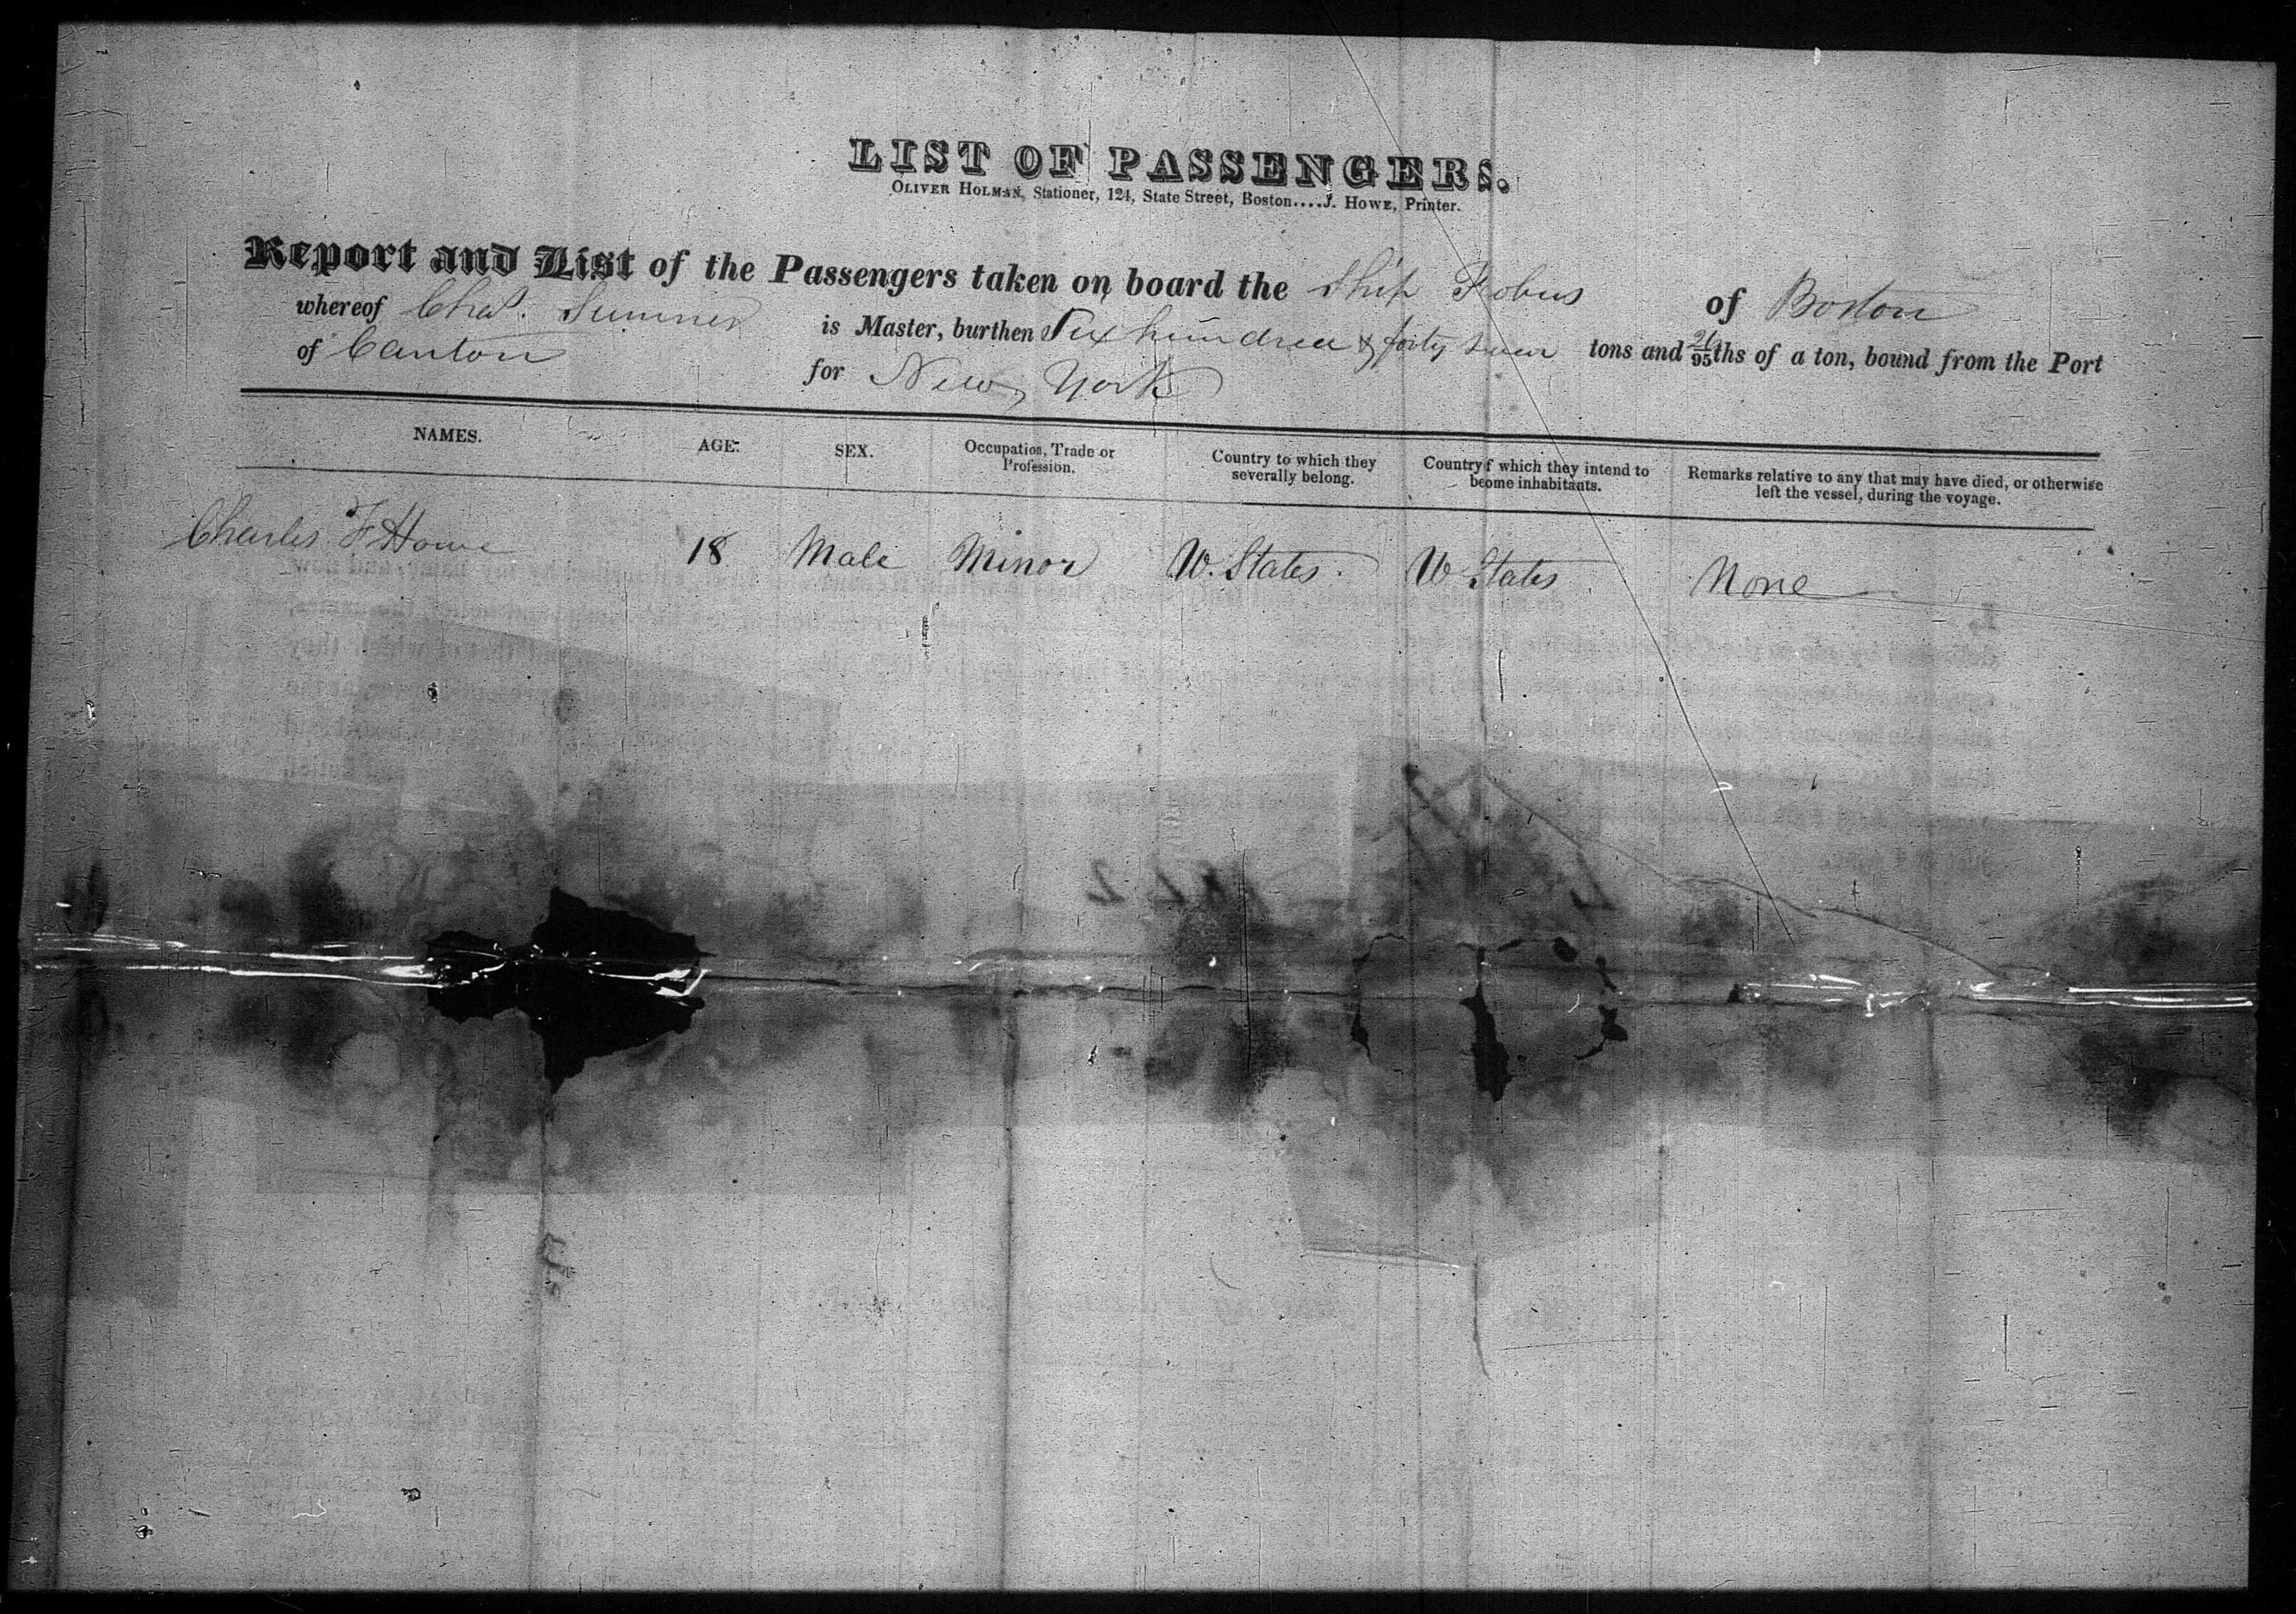 LIST OF PASSENGERS.
OLIVER HOLMAN, Stationer, 124, State Street, Boston....J. HOWE, Printer.
Report and List of the Passengers taken on board the Ship Probus of Boston
whereof Chas. Sumner is Master, burthen Six hundred & forty seven tons and 26/95ths of a ton, bound from the Port
of Canton for New York
NAMES. AGE. SEX. Occupation, Trade or Profession. Country to which they severally belong. Country of which they intend to become inhabitants. Remarks relative to any that may have died, or otherwise left the vessel, during the voyage.
Charles F Howe 18 Male Minor U. States. U States None